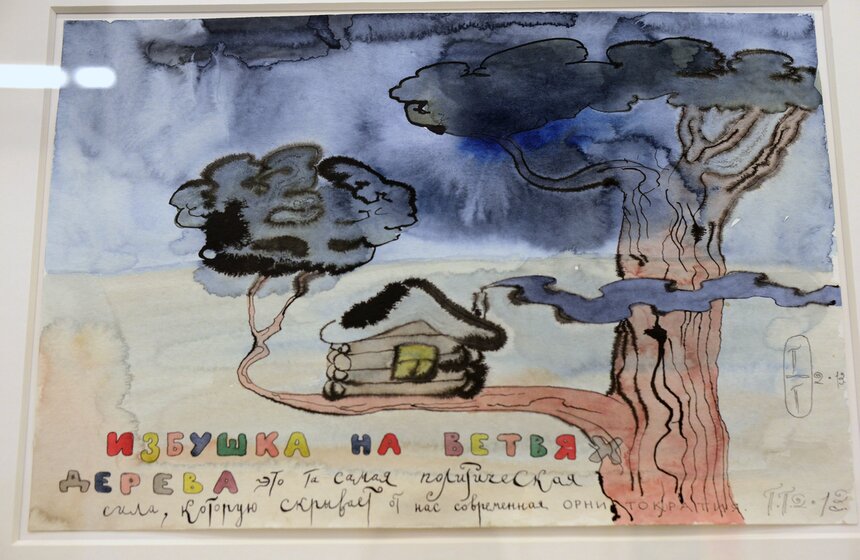 ИЗБУШКА НА ВЕТВЯХ
ДЕРЕВА это та самая политическая
сила, которую скрывает от нас современная ОРНИТОКРАТИЯ.